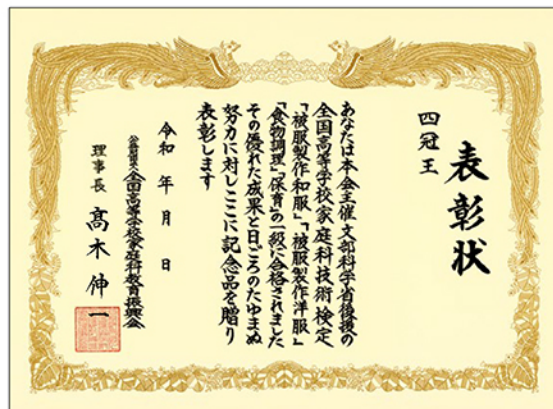 表彰状
四冠王
あなたは本会主催文部科学省後援の
全国高等学校家庭科技術検定
「被服製作和服」「被服製作洋服」
「食物調理」「保育」の一級に合格されました
その優れた成果と日ごろのたゆまぬ
努力に対しここに記念品を贈り
表彰します
令和 年 月 日
公益財団法人全国高等学校家庭科教育振興会
理事長 髙木伸一